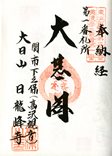 奉納経
第一番札所
大慈閣
関市下之保(高沢観音)
大日山 日龍峰寺